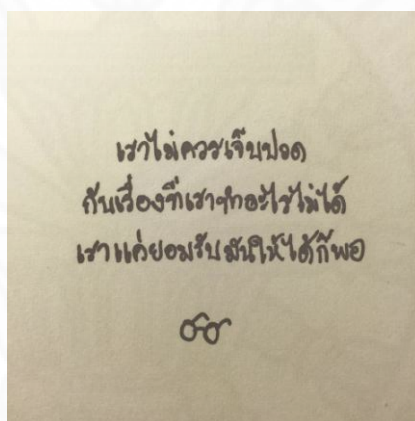 เราไม่ควรเจ็บปวด
กับเรื่องที่เราทำอะไรไม่ได้
เราแค่ยอมรับมันให้ได้ก็พอ